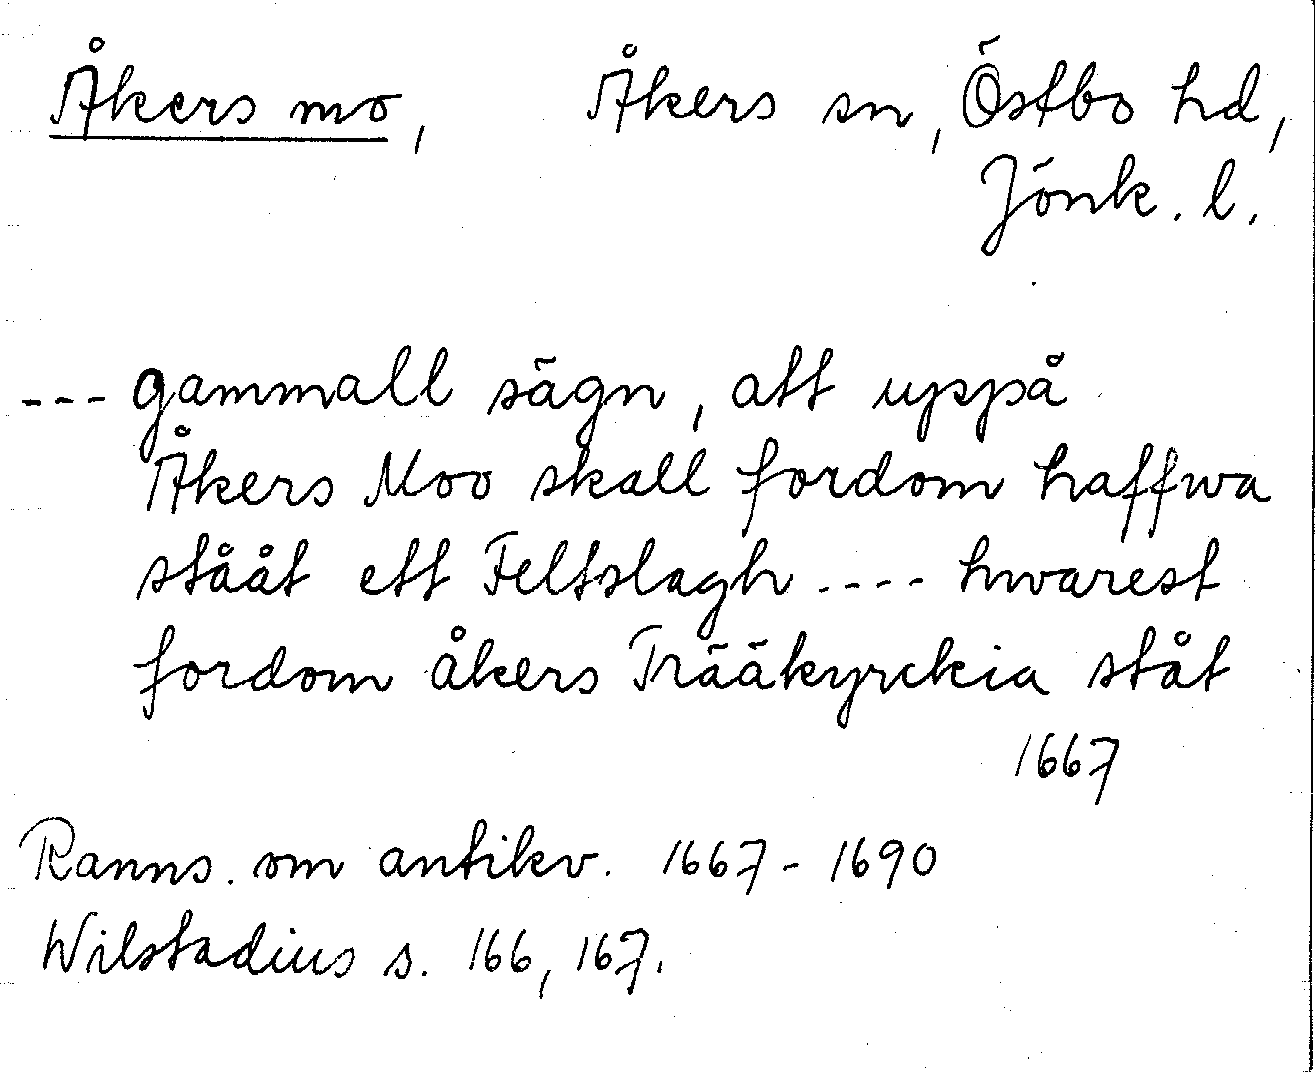 Åkers mo, Åkers sn, Östbo hd,
Jönk. l.
--- gammall sägn, att uppå
Åkers Moo skall fordom haffwa
stååt ett Feltslagh ---- hwarest
fordom åkers Trääkyrckia ståt
1667
Ranns. om antikv. 1667-1690
Wilstadius s. 166, 167.